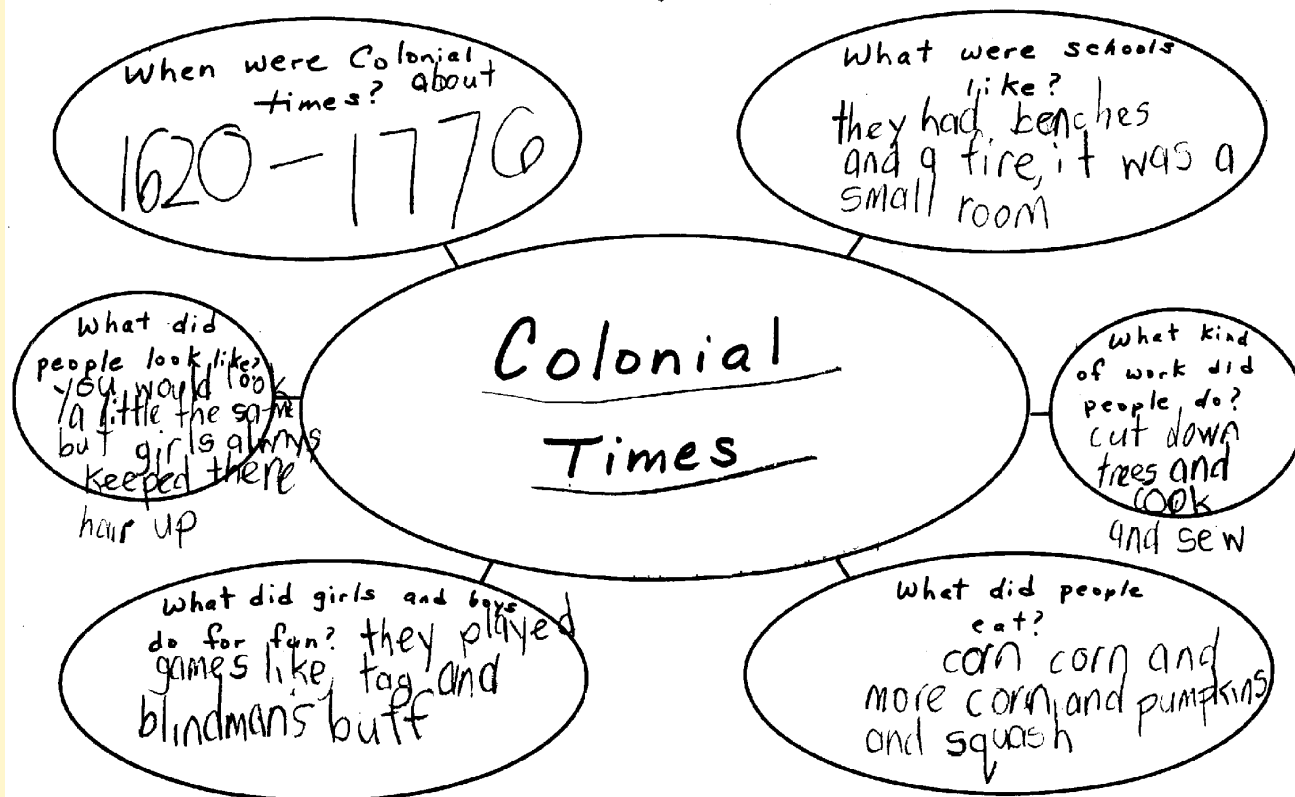 When were Colonial
times? about
1620-1776
What were schools
like?
they had benches
and a fire, it was a
small room
What did
people look like?
you would look
a little the same
but girls always
keeped there
hair up
Colonial
Times
What kind
of work did
people do?
cut down
trees and
cook
and sew
What did girls and boys
do for fun? they played
games like tag and
blindmans buff
What did people
eat?
corn corn and
more corn, and pumpkins
and squash